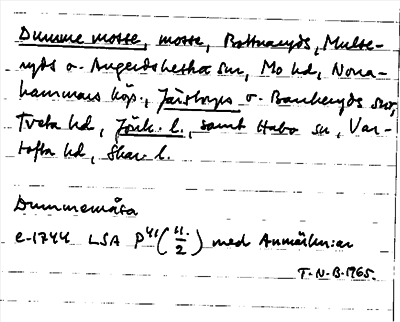 Dumme mosse, mosse, Bottnaryds, Mulse-
ryds o. Angerdshestra snr, Mo hd, Norra-
hammars köp., Järstorps o. Bankeryds snr,
Tveta hd, Jönk. l., samt Habo sn, Var-
tofta hd, Skar. l.
Dummemåsa
c. 1744 LSA P 41 (11/2) med Anmärkn:ar
T.N.B. 1965.